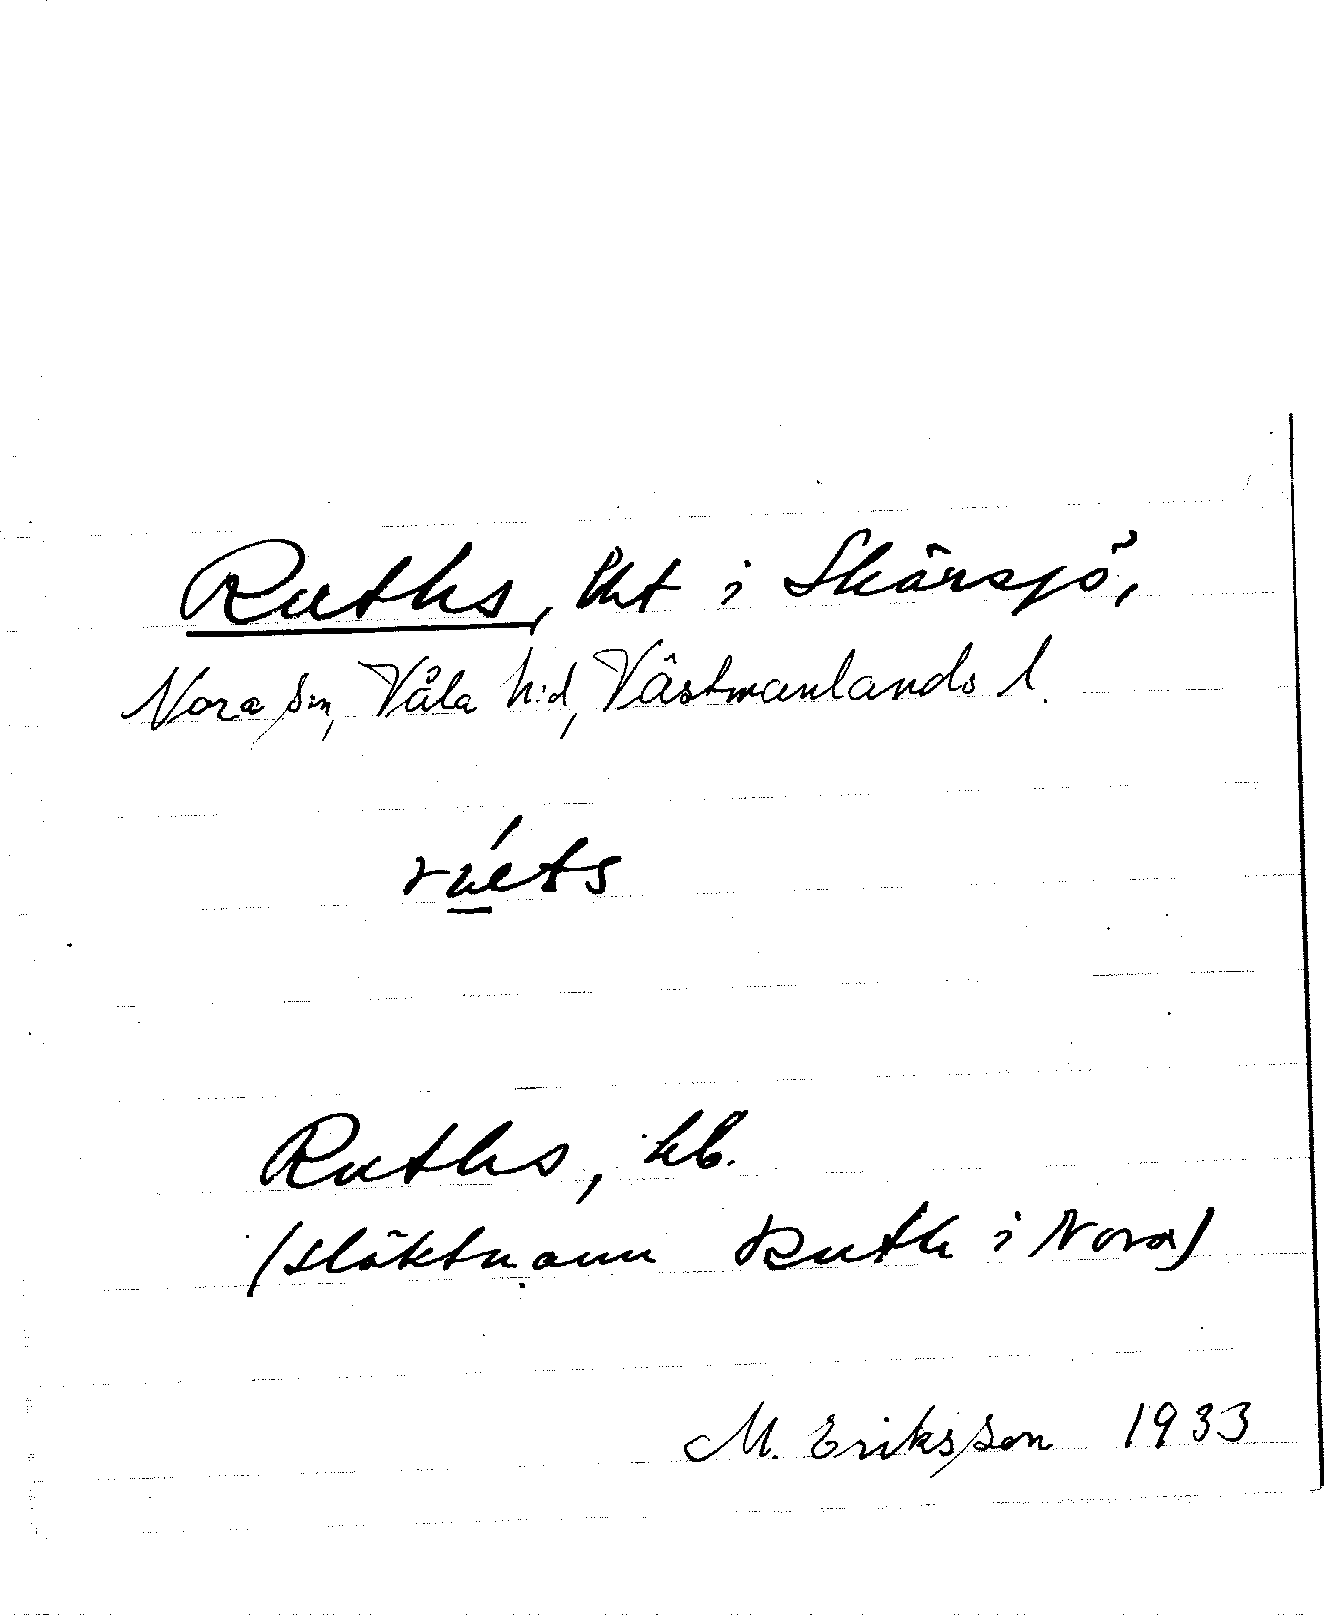 Ruths, lht i Skärsjö,
Nora sn, Våla h:d, Västmanlands l.
ruets
Ruths, hb.
(släktnamn Ruth i Nora)
M. Eriksson 1933